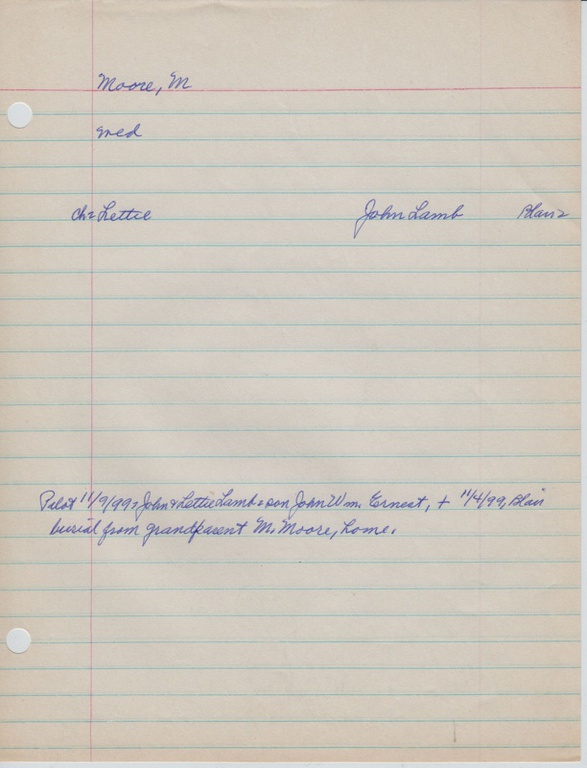 Moore, M
med
Ch = Lettie John Lamb Blair =
Pilot 11/9/99 = John & Lettie Lamb = son John Wm. Ernest, + 11/4/99, Blair
burial from grandparent M. Moore, home.